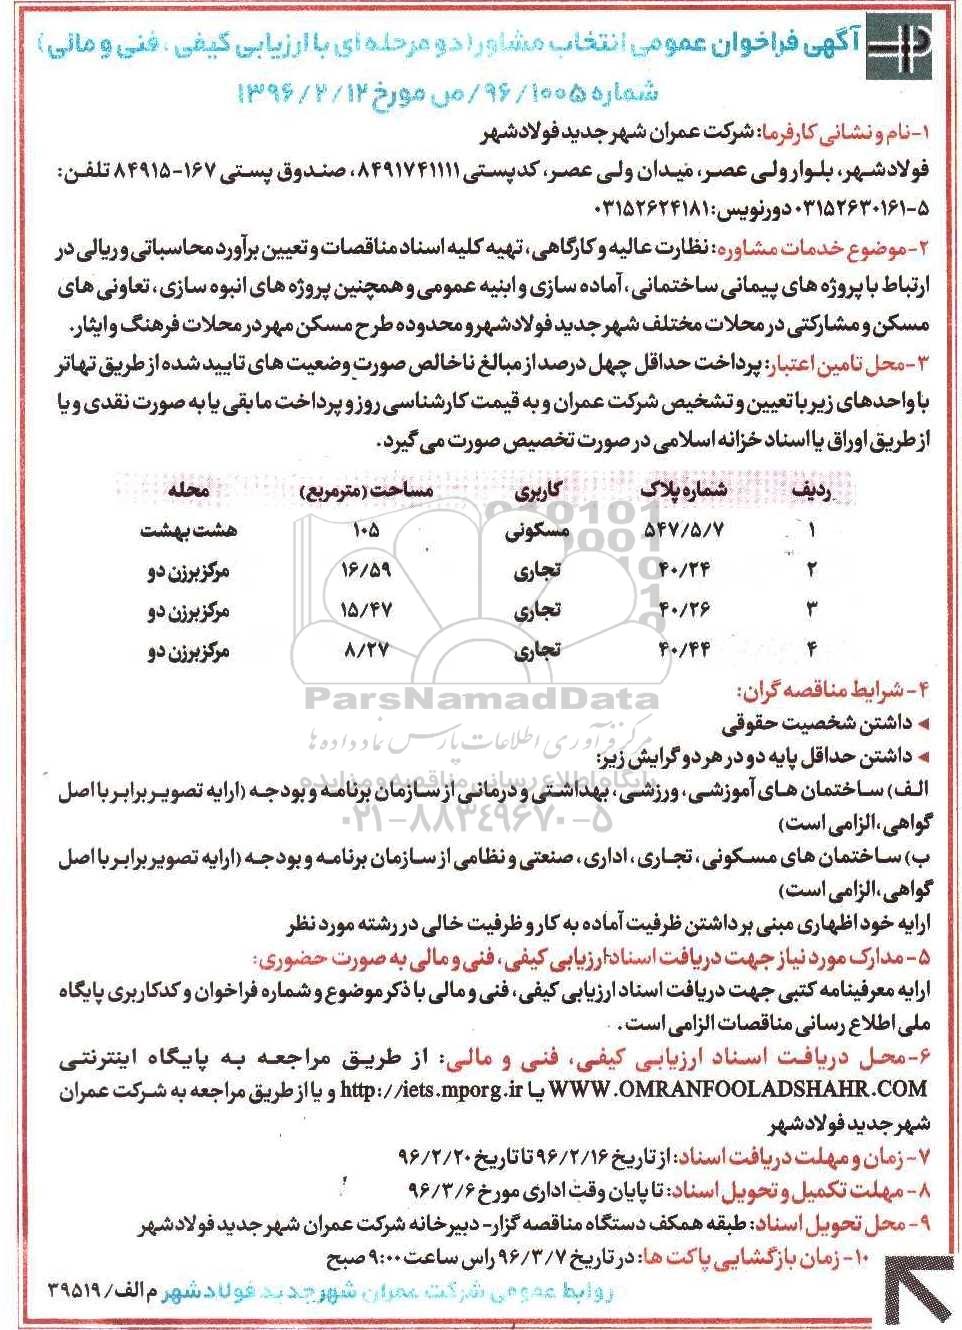 آگهی فراخوان عمومی انتخاب مشاور (دو مرحله‌ای با ارزیابی کیفی، فنی و مالی)
شماره ۹۶/۱۰۰۵/ص مورخ ۱۳۹۶/۲/۱۲
۱-نام و نشانی کارفرما: شرکت عمران شهر جدید فولادشهر
فولادشهر، بلوار ولی عصر، میدان ولی عصر، کدپستی ۸۴۹۱۷۴۱۱۱۱، صندوق پستی ۱۶۷-۸۴۹۱۵ تلفن:
۰۳۱۵۲۶۳۰۱۶۱-۵ دورنویس: ۰۳۱۵۲۶۲۴۱۸۱
۲-موضوع خدمات مشاوره: نظارت عالیه و کارگاهی، تهیه کلیه اسناد مناقصات و تعیین برآورد محاسباتی و ریالی در
ارتباط با پروژه های پیمانی ساختمانی، آماده سازی و ابنیه عمومی و همچنین پروژه های انبوه سازی، تعاونی های
مسکن و مشارکتی در محلات مختلف شهر جدید فولادشهر و محدوده طرح مسکن مهر در محلات فرهنگ و ایثار.
۳-محل تامین اعتبار: پرداخت حداقل چهل درصد از مبالغ ناخالص صورت وضعیت های تایید شده از طریق تهاتر
با واحدهای زیر با تعیین و تشخیص شرکت عمران و به قیمت کارشناسی روز و پرداخت مابقی یا به صورت نقدی و یا
از طریق اوراق یا اسناد خزانه اسلامی در صورت تخصیص صورت می گیرد.
ردیف شماره پلاک کاربری مساحت (مترمربع) محله
۱ ۵۴۷/۵/۷ مسکونی ۱۰۵ هشت بهشت
۲ ۴۰/۲۴ تجاری ۱۶/۵۹ مرکز برزن دو
۳ ۴۰/۲۶ تجاری ۱۵/۴۷ مرکز برزن دو
۴ ۴۰/۴۴ تجاری ۸/۲۷ مرکز برزن دو
ParsNamadData
مرکز فرآوری اطلاعات پارس نماد داده ها
پایگاه اطلاع رسانی مناقصه و مزایده
۰۲۱-۸۸۳۴۹۶۷۰-۵
۴-شرایط مناقصه گران:
◄ داشتن شخصیت حقوقی
◄ داشتن حداقل پایه دو در هر دو گرایش زیر:
الف) ساختمان های آموزشی، ورزشی، بهداشتی و درمانی از سازمان برنامه و بودجه (ارایه تصویر برابر با اصل
گواهی، الزامی است)
ب) ساختمان های مسکونی، تجاری، اداری، صنعتی و نظامی از سازمان برنامه و بودجه (ارایه تصویر برابر با اصل
گواهی، الزامی است)
ارایه خود اظهاری مبنی بر داشتن ظرفیت آماده به کار و ظرفیت خالی در رشته مورد نظر
۵-مدارک مورد نیاز جهت دریافت اسناد ارزیابی کیفی، فنی و مالی به صورت حضوری:
ارایه معرفینامه کتبی جهت دریافت اسناد ارزیابی کیفی، فنی و مالی با ذکر موضوع و شماره فراخوان و کدکاربری پایگاه
ملی اطلاع رسانی مناقصات الزامی است.
۶-محل دریافت اسناد ارزیابی کیفی، فنی و مالی: از طریق مراجعه به پایگاه اینترنتی
WWW.OMRANFOOLADSHAHR.COM یا http://iets.mporg.ir و یا از طریق مراجعه به شرکت عمران
شهر جدید فولادشهر
۷-زمان و مهلت دریافت اسناد: از تاریخ ۹۶/۲/۱۶ تا تاریخ ۹۶/۲/۲۰
۸-مهلت تکمیل و تحویل اسناد: تا پایان وقت اداری مورخ ۹۶/۳/۶
۹-محل تحویل اسناد: طبقه همکف دستگاه مناقصه گزار- دبیرخانه شرکت عمران شهر جدید فولادشهر
۱۰-زمان بازگشایی پاکت ها: در تاریخ ۹۶/۳/۷ راس ساعت ۹:۰۰ صبح
روابط عمومی شرکت عمران شهر جدید فولادشهر م الف/۳۹۵۱۹